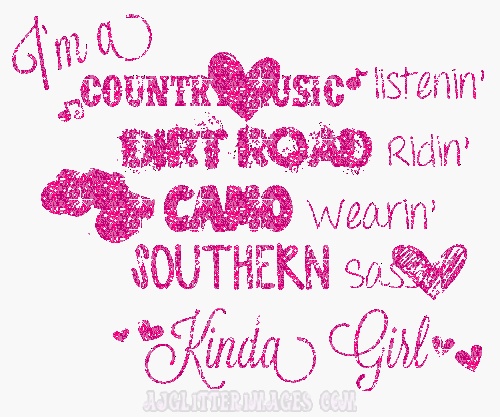 I'm a
COUNTRY MUSIC listenin'
DIRT ROAD Ridin'
CAMO Wearin'
SOUTHERN
Kinda Girl
AJGLITTERIMAGES.COM